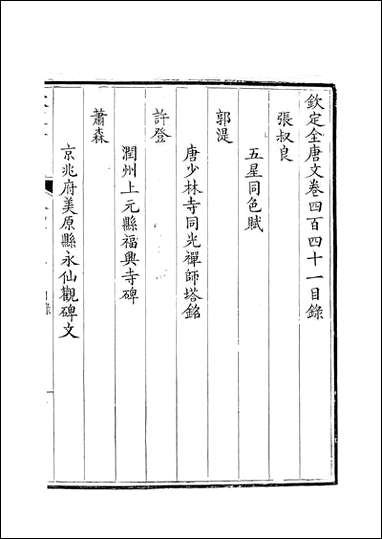 欽定全唐文卷四百四十一目錄
張叔良
五星同色賦
郭湜
唐少林寺同光禪師塔銘
許登
潤州上元縣福興寺碑
蕭森
京兆府美原縣永仙觀碑文